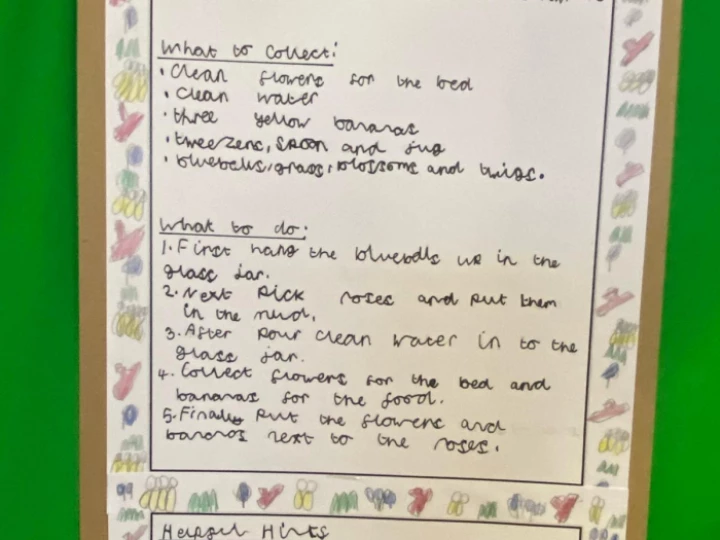 What to collect:
• Clean flowers for the bed
• Clean water
• three yellow bananas
• tweezers, spoon and jug
• bluebells, grass, blossoms and twigs.
What to do:
1. First hang the bluebells up in the
glass jar.
2. Next pick roses and put them
in the mud.
3. After pour clean water in to the
glass jar.
4. Collect flowers for the bed and
bananas for the food.
5. Finally put the flowers and
bananas next to the roses.
Helpful Hints